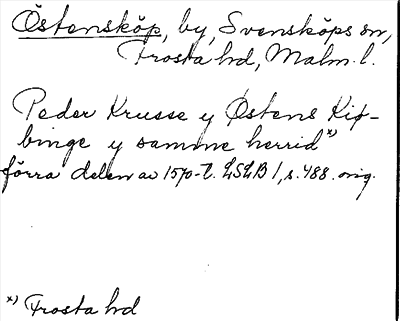 Östensköp, by, Svensköps sn,
Frosta hd, Malm. l.
Peder Krusse y Østens Kiø-
binge y samme herrid *)
förra delen av 1570-t. LSLB 1, s. 488. orig.
*) Frosta hd